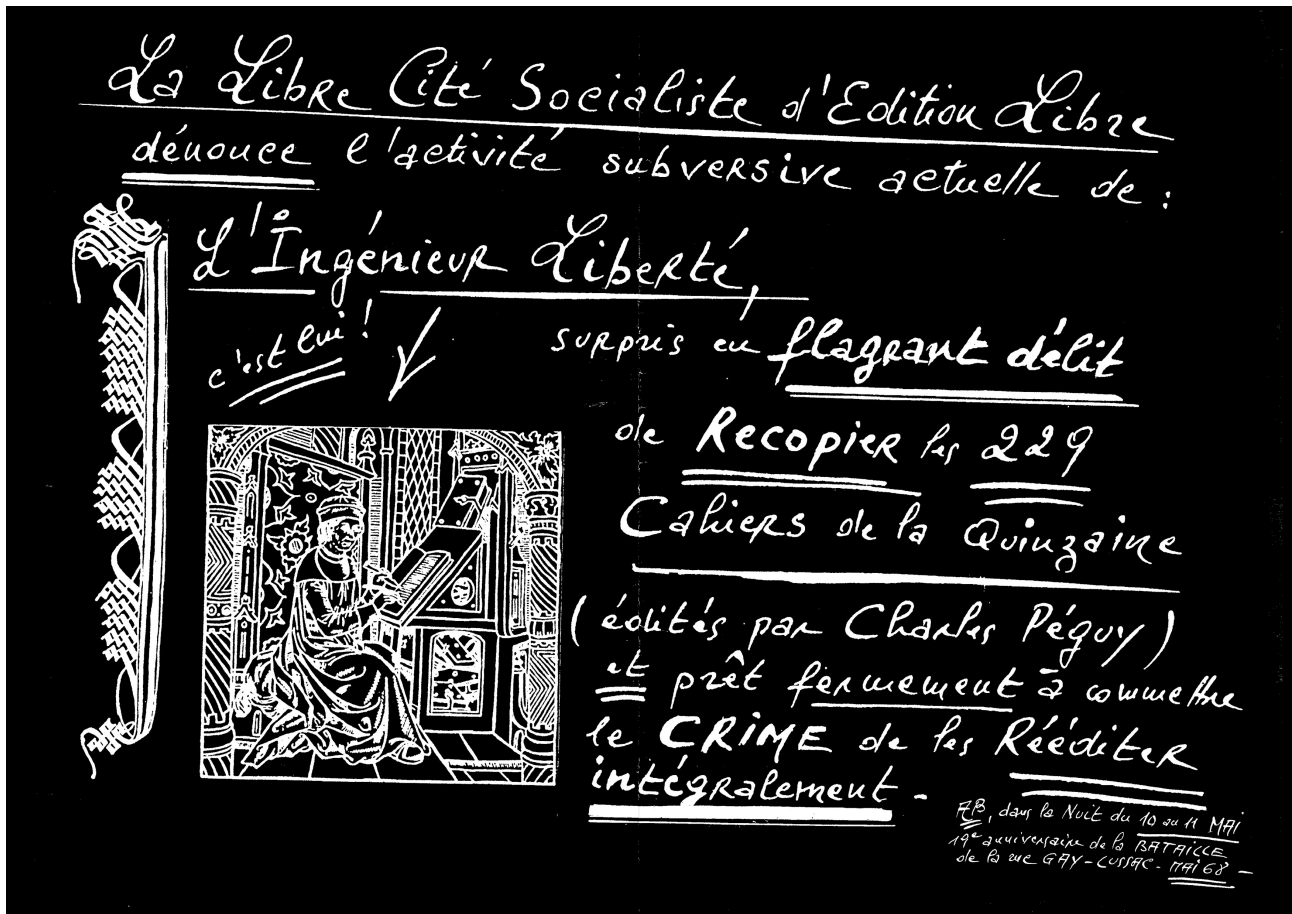 La Libre Cité Socialiste d'Edition Libre
dénonce l'activité subversive actuelle de :
L'Ingénieur Liberté,
c'est lui !
surpris en flagrant délit
de Recopier les 229
Cahiers de la Quinzaine
(édités par Charles Péguy)
et prêt fermement à commettre
le CRiME de les Rééditer
intégralement -
AB, dans la Nuit du 10 au 11 MAI
19e anniversaire de la BATAILLE
de la rue GAY-LUSSAC - MAI 68 -